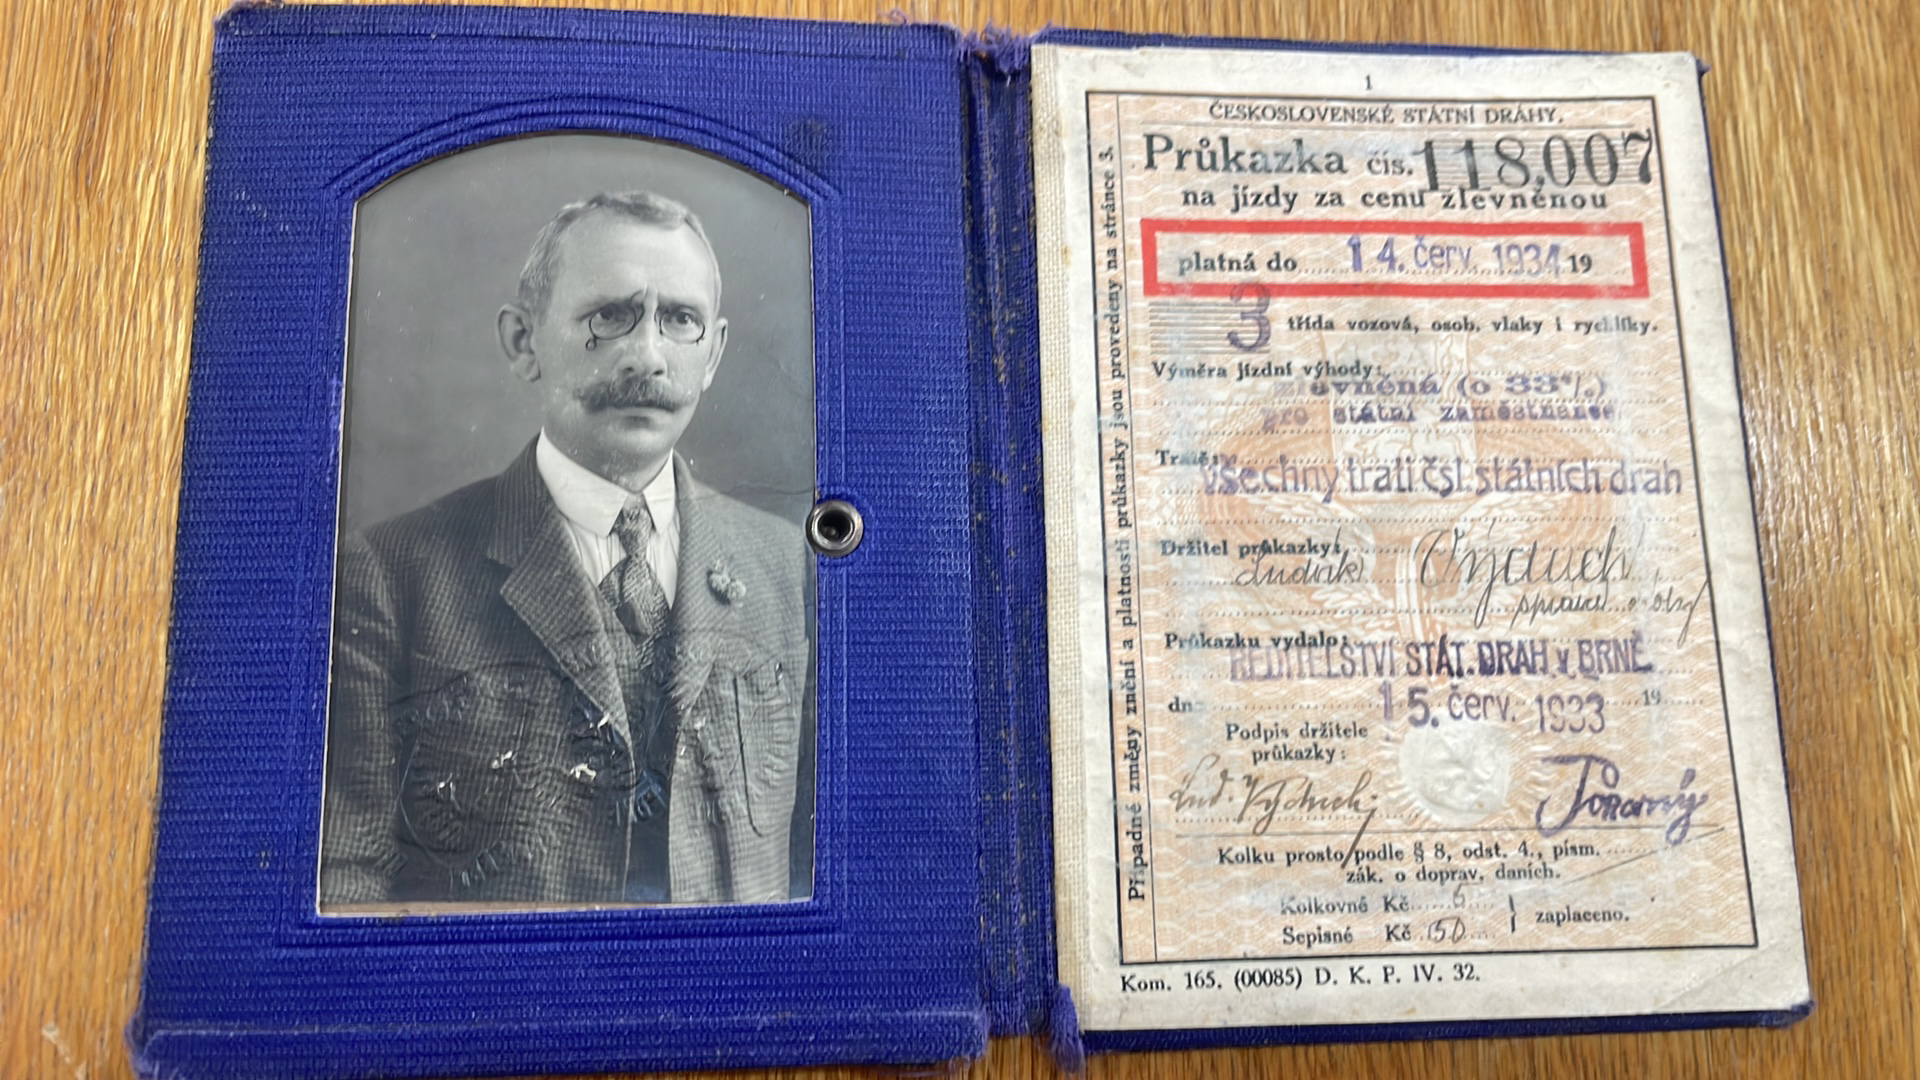 1
ČESKOSLOVENSKÉ STÁTNÍ DRÁHY.
Průkazka čís. 118.007
na jízdy za cenu zlevněnou
platná do 14. červ. 1934 19
3 třída vozová, osob. vlaky i rychlíky.
Výměra jízdní výhody:
zlevněná (o 33%)
pro státní zaměstnance
Trať:
všechny trati čsl. státních drah
Držitel průkazky:
Ludvík Výduch
Průkazku vydalo:
ŘEDITELSTVÍ STÁT. DRAH v BRNĚ
dne 15. červ. 1933 19
Podpis držitele
průkazky:
Lud.
Kolku prosto podle § 8, odst. 4., písm.
zák. o doprav. daních.
Kolkovné Kč
Sepisné Kč
zaplaceno.
Kom. 165. (00085) D. K. P. IV. 32.
Případné změny znění a platnosti průkazky jsou provedeny na stránce 3.